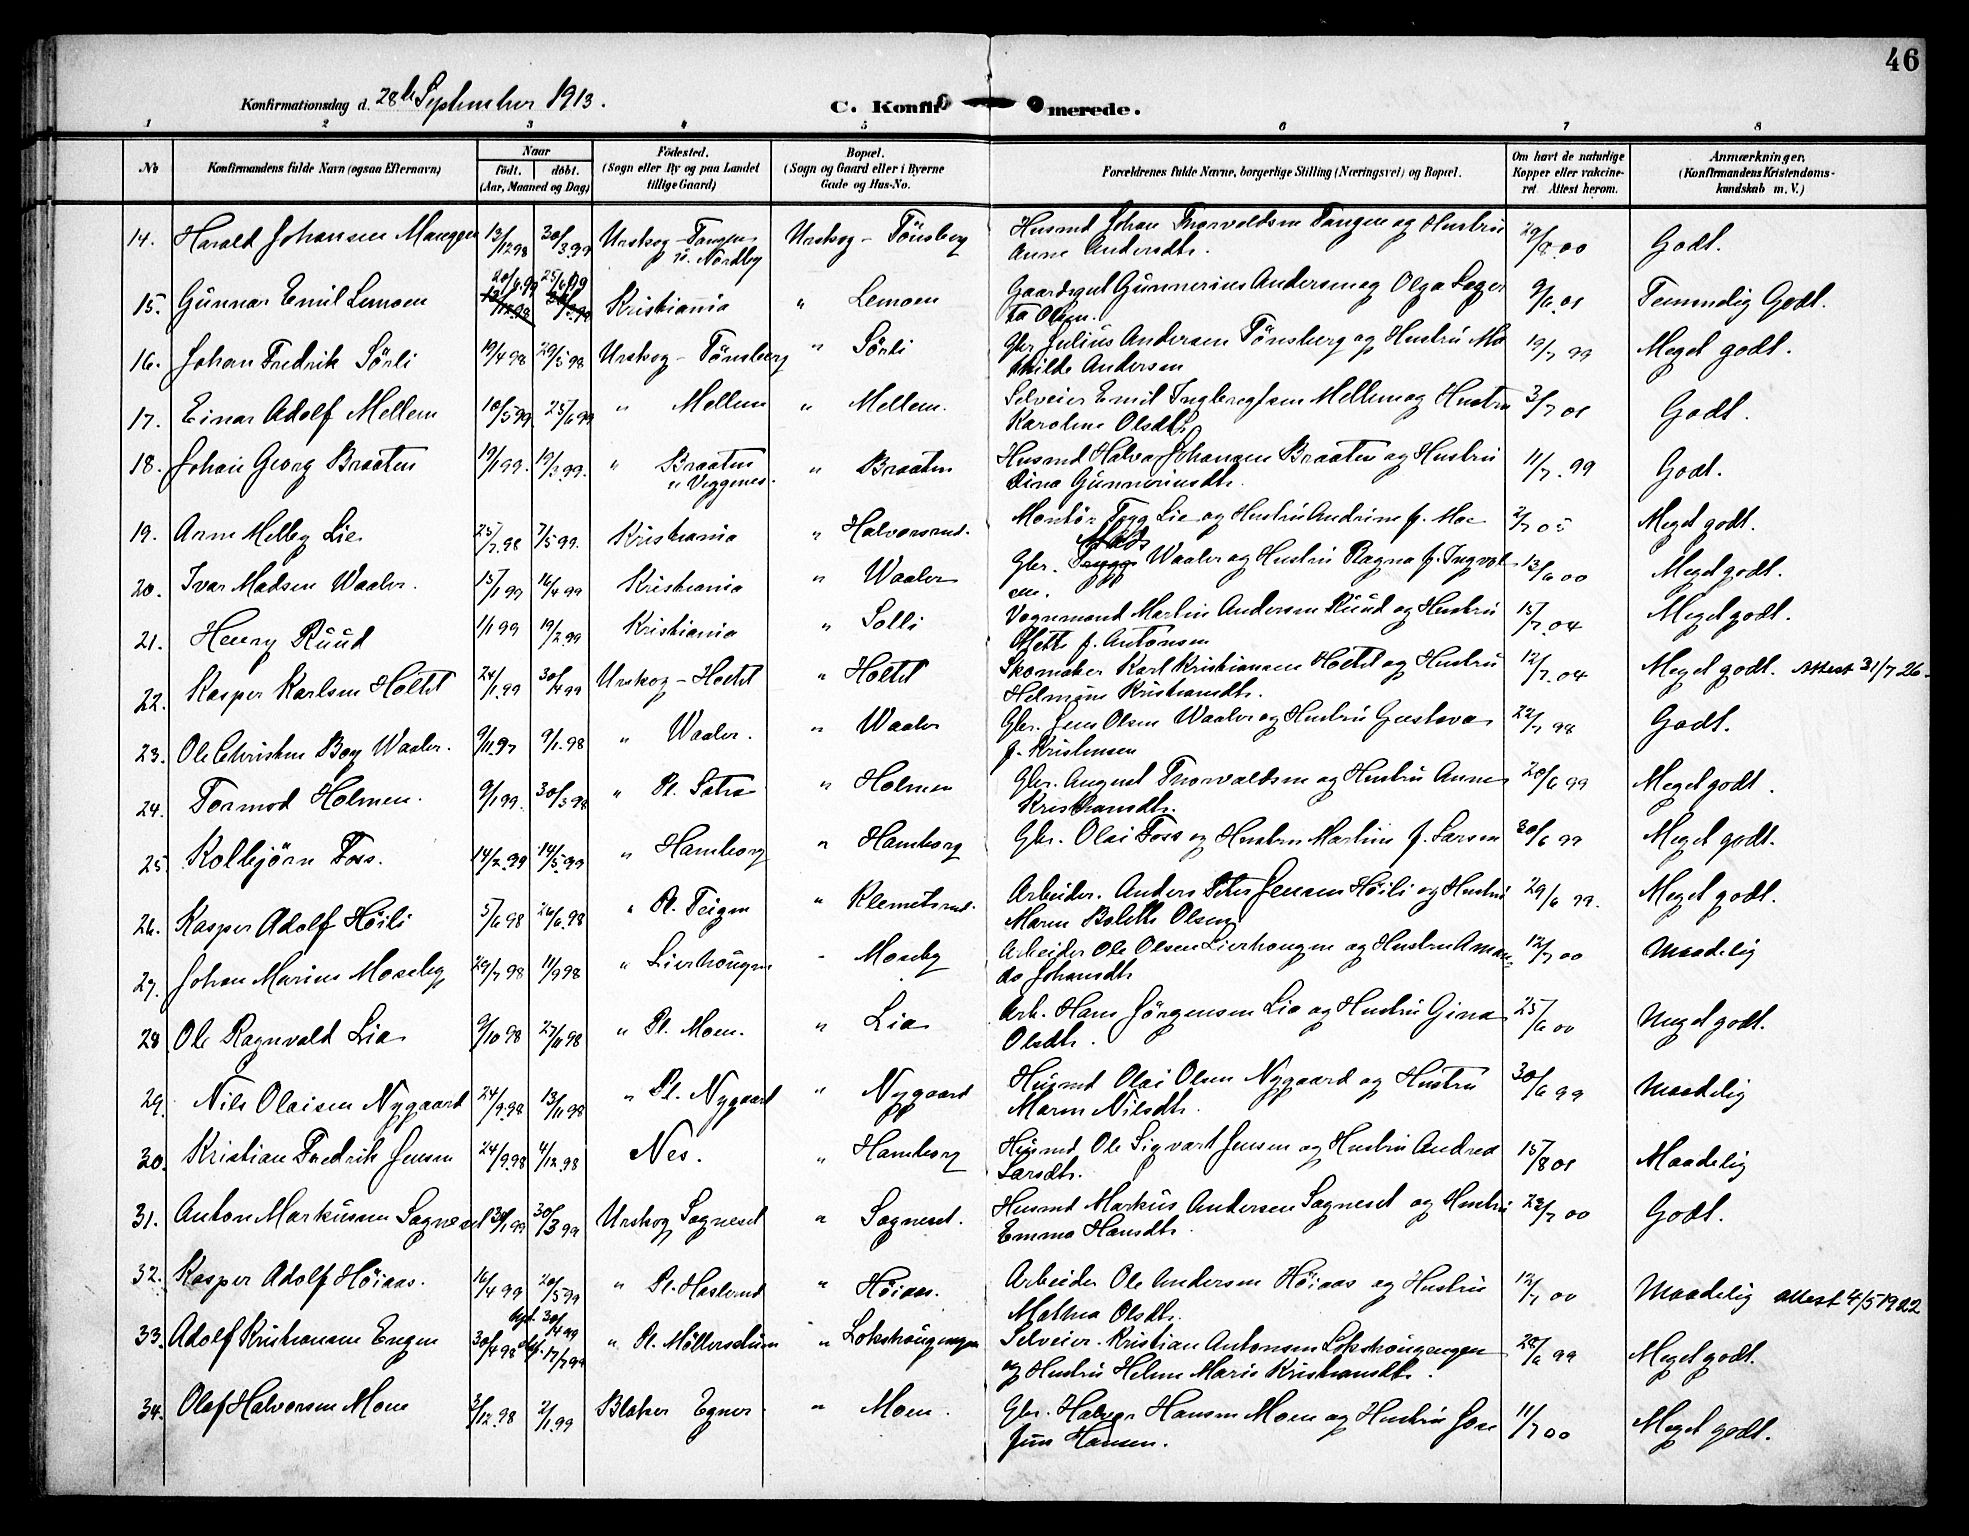 46
Konfirmationsdag d. 28de September 1913.
C. Konfir merede.
1 2 3 4 5 6 7 8
No
Konfirmandens fulde Navn (ogsaa Efternavn)
Naar
födt. döbt.
(Aar, Maaned og Dag)
Födested.
(Sogn eller By og paa Landet
tillige Gaard)
Bopæl.
(Sogn og Gaard eller i Byerne
Gade og Hus-No.
Forældrenes fulde Navne, borgerlige Stilling (Næringsvei) og Bopæl.
Om havt de naturlige
Kopper eller vakcine-
ret. Attest herom.
Anmærkninger,
(Konfirmandens Kristendoms-
kundskab m. V.)
14. Harald Johansen 13/12 98 30/3 99 Urskog - Tangen Urskog - Tönsberg Husmd Johan Thorvaldsen Tangen og Hustru 29/8 00 Godt.
u. Nordby Anne Andersdtr.
20/4 99 25/6 99
15. Gunnar Emil Lemoen Kristiania " Lemoen Gaardsgut Gunnerius Andersen og Olga 9/6 01 Temmelig Godt.
Olsen.
16. Johan Fredrik Sörli 19/4 98 29/5 98 Urskog - Tönsberg " Sörli Gbr. Julius Andersen Tönsberg og Hustru Ma 19/7 99 Meget godt.
thilde Andersen
17. Einar Adolf Mellem 10/5 99 25/6 99 " Mellem " Mellem. Selveier Emil Ingbregtsen Mellem og Hustru 3/7 01 Godt.
Karoline Olsdtr.
18. Johan Georg Braaten 19/1 99. 19/3 99. " Braaten " Braaten Husmd Halvor Johansen Braaten og Hustru 11/7 99 Godt.
u Veggenes. Lina Gunneriusdtr.
19. Arne Melby Lie 25/7 98 7/5 99. Kristiania " Halvorsrud. Montör Tygg Lie og Hustru Andrine f. Moe 2/7 05 Meget godt.
Mads
20. Ivar Madsen Waaler. 15/1 99 16/4 99 Kristiania " Waaler Gbr. Tygg Waaler og Hustru Ragna f. Ingvol 13/6 00 Meget godt.
sen.
21. Henry Ruud 1/1 99 19/2 99 Kristiania " Solli Vognmand Martin Andersen Ruud og Hustru 15/7 04 Meget godt.
Mette f. Antonsen
22. Kasper Karlsen Holtet 24/1 99 30/4 99 Urskog - Holtet " Holtet Skomaker Karl Kristiansen Holtet og Hustru 12/7 04 Meget godt. Attest 31/7 26.
Helmine Kristiansdtr.
23. Ole Christen Boy Waaler. 9/11 97 9/1 98 " Waaler. " Waaler Gbr. Jens Olsen Waaler og Hustru Gustava 22/7 98 Godt.
f. Kristensen
24. Tormod Holmen. 9/1 99. 30/3 98 " Pl. Sətra " Holmen Gbr. August Thorvaldsen og Hustru Anne 20/6 99 Meget godt.
Kristiansdtr.
25. Kolbjörn Foss. 14/2 99 14/5 99 " Hamborg " Hamborg Gbr. Olai Foss og Hustru Martine f. Larsen 30/6 99 Meget godt.
26. Kasper Adolf Höili 5/6 98 26/6 98 " Pl. Teigen " Klemetsrud. Arbeider. Anders Peter Jensen Höili og Hustru 29/6 99. Meget godt.
Maren Bolette Olsen
27. Johan Marius Moseby 29/7 98 11/9 98 " Lierhougen - Moseby Arbeider Ole Olsen Lierhougen og Hustru Aman- 12/7 00 Maadelig
da Johansdtr.
28 Ole Ragnvald Lia 9/10 98 27/11 98 " Pl. Moen. " Lia Arb. Hans Jörgensen Lia og Hustru Gina 25/6 00 Meget godt.
Olsdtr.
29. Nils Olaisen Nygaard 24/9 98 13/11 98 " Pl. Nygaard " Nygaard Husmd Olai Olsen Nygaard og Hustru 30/6 99 Maadelig
Maren Nilsdtr.
30. Kristian Fredrik Jensen 24/9 98 4/12 98 Nes. " Hamborg Husmd Ole Sigvart Jensen og Hustru Andrea 15/8 01 Maadelig
Larsdtr.
31. Anton Markusen Sagneset 30/1 99 30/3 99 Urskog Sagneset " Sagneset. Husmd Markus Andersen Sagneset og Hustru 22/7 00 Godt.
Emma Hansdtr.
32. Kasper Adolf Höiaas. 16/4 99 20/5 99 " Pl. Haslerud " Höiaas. Arbeider Ole Andersen Höiaas og Hustru 12/7 00 Maadelig attest 4/5 1922
Mathea Olsdtr.
33. Adolf Kristiansen Engen 30/4 98 30/4 99 17/7 99 " Pl. Möllersdum " Lokshougengen Selveier. Kristian Antonsen Lokshougengen 28/6 99 Meget godt.
og Hustru Helene Marie Kristiansdtr.
34. Olaf Halvorsen Moen 3/12 98 2/1 99 Blaker Egner " Moen. Gbr. Halvor Hansen Moen og Hustru Jose 11/7 00 Meget godt.
fine Hansen.